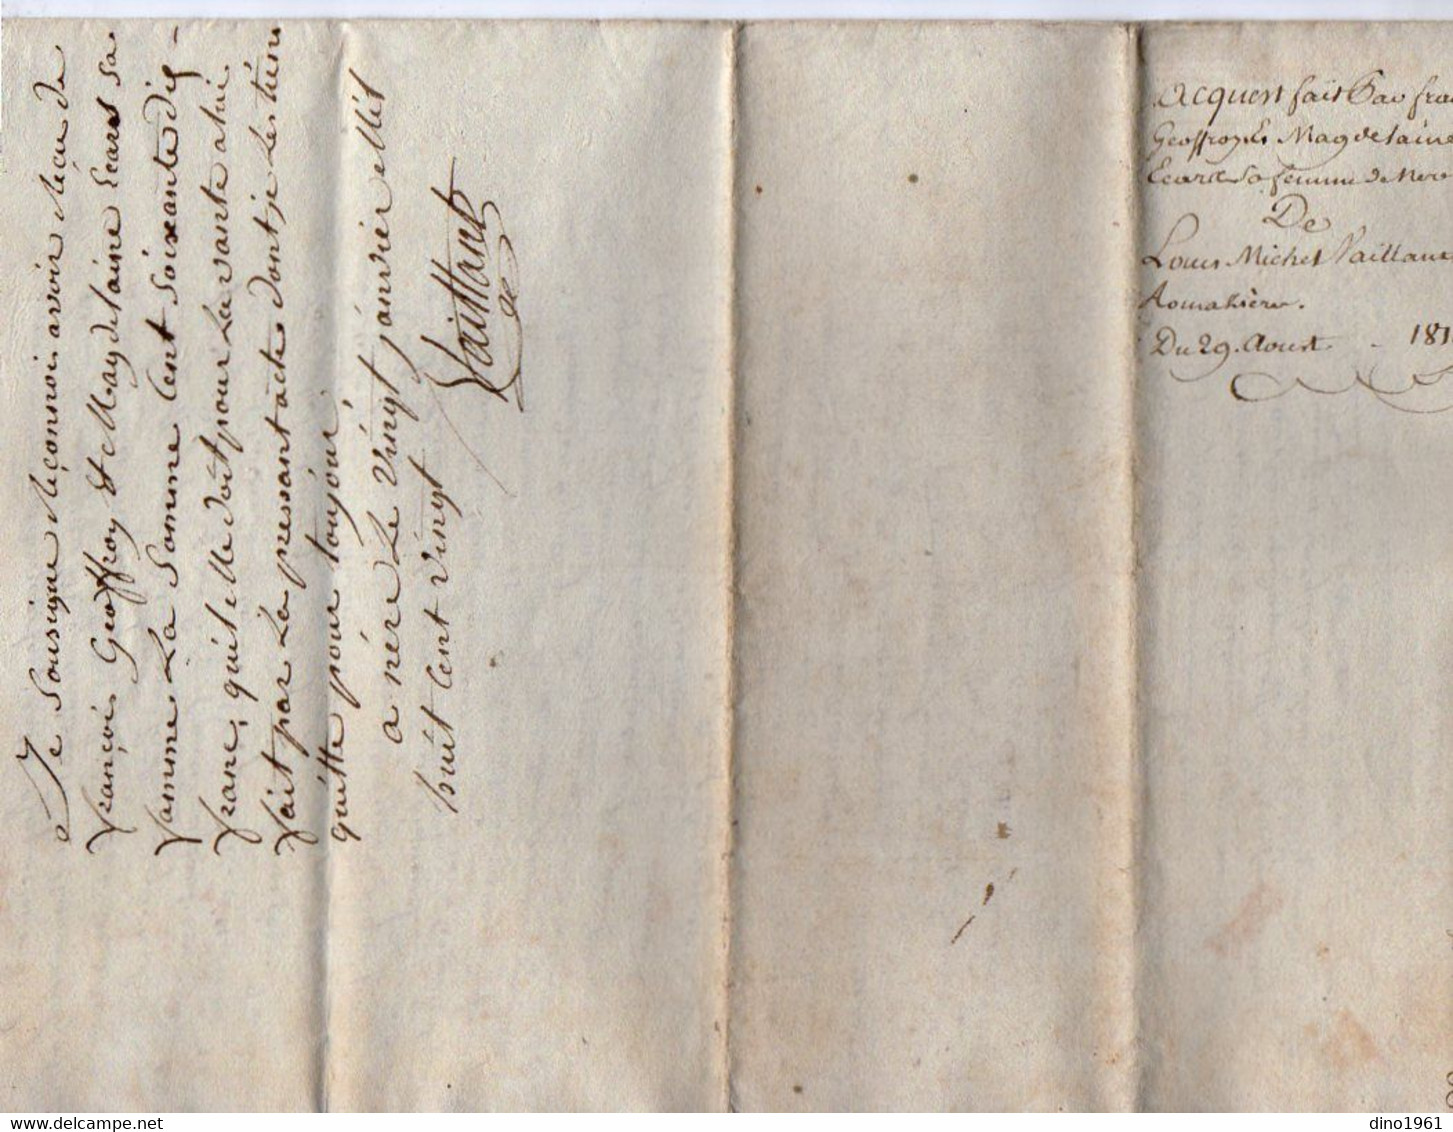 Je Sousigné Reçonnoi avoir Reçu de
françois Geoffroy Et Magdelaine Ecard sa
famme La Somme Cent Soixante dis
franc, quil elle doit pour La vante a lui
fait par La pressant acte dont je Les tien
quitte pour toujour,
a nére Le Vingt janvier Mil
huit Cent Vingt
Vaillant
Acquest fait Par fra
Geoffroy Et Magdelaine
Ecard Sa femme de Nere
De
Louis Michel Vaillant
Du 29. Aoust 181
dino1961